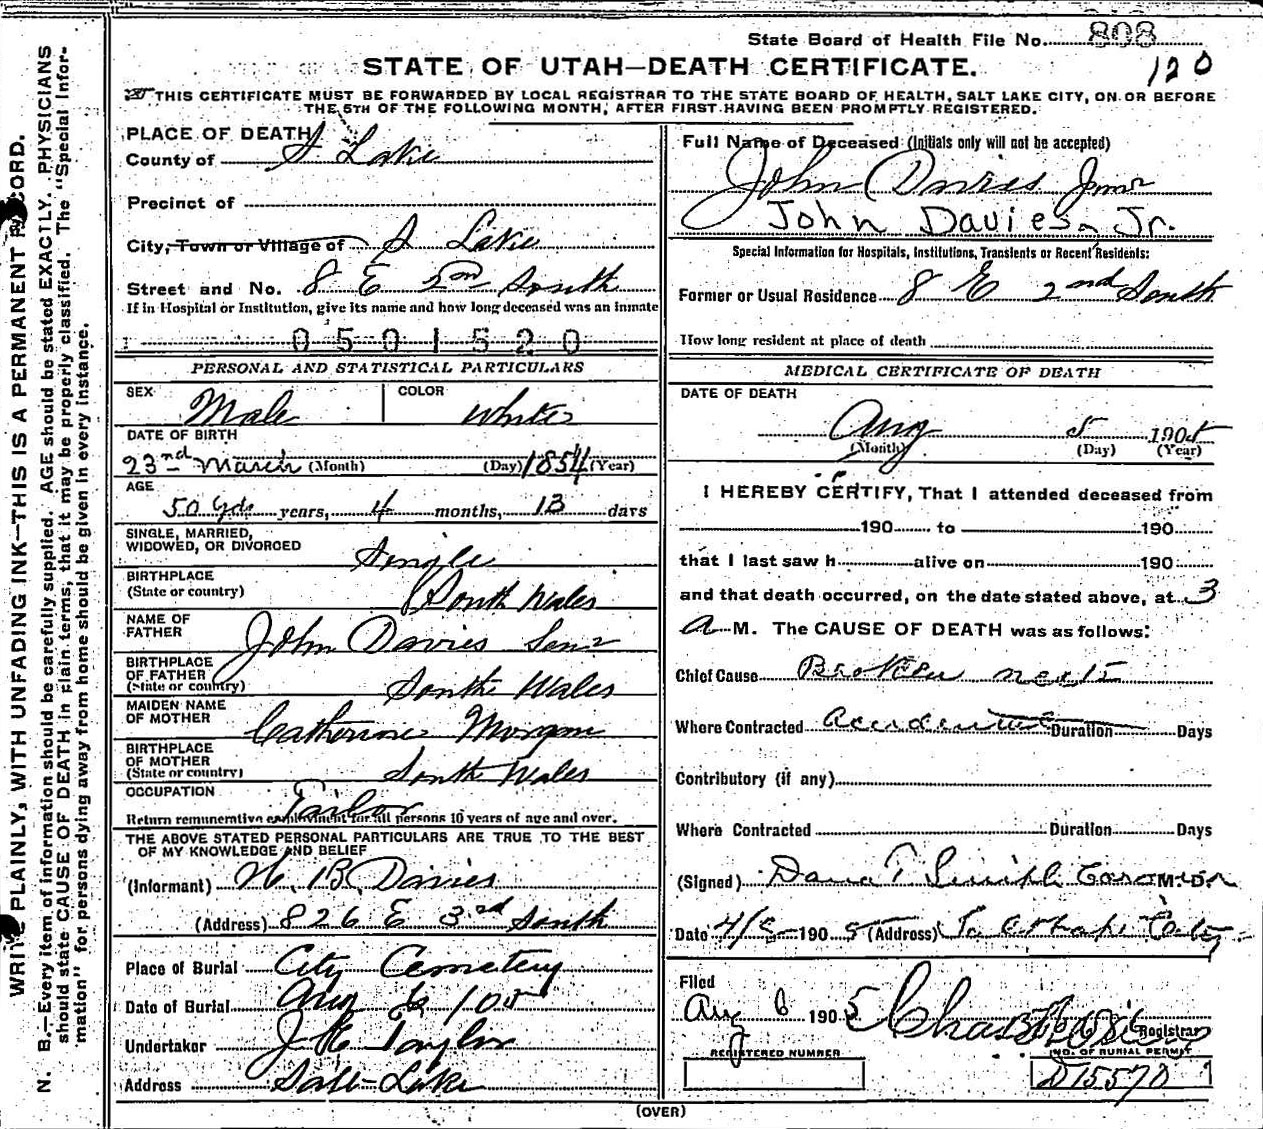 State Board of Health File No. 808
120
STATE OF UTAH—DEATH CERTIFICATE.
THIS CERTIFICATE MUST BE FORWARDED BY LOCAL REGISTRAR TO THE STATE BOARD OF HEALTH, SALT LAKE CITY, ON OR BEFORE
THE 5TH OF THE FOLLOWING MONTH, AFTER FIRST HAVING BEEN PROMPTLY REGISTERED.
WRITE PLAINLY, WITH UNFADING INK—THIS IS A PERMANENT RECORD.
N. B.—Every item of information should be carefully supplied. AGE should be stated EXACTLY. PHYSICIANS
should state CAUSE OF DEATH in plain terms, that it may be properly classified. The "Special Infor-
mation" for persons dying away from home should be given in every instance.
PLACE OF DEATH
County of S Lake
Precinct of
City, Town or Village of S Lake
Street and No. 8 E 2nd South
If in Hospital or Institution, give its name and how long deceased was an inmate
0501520
PERSONAL AND STATISTICAL PARTICULARS
SEX Male COLOR White
DATE OF BIRTH
23nd March (Month) (Day) 1854 (Year)
AGE
50 yds years, 4 months, 13 days
SINGLE, MARRIED,
WIDOWED, OR DIVORCED Single
BIRTHPLACE
(State or country) South Wales
NAME OF
FATHER John Davies Senr
BIRTHPLACE
OF FATHER
(State or country) South Wales
MAIDEN NAME
OF MOTHER Catherine Morgan
BIRTHPLACE
OF MOTHER
(State or country) South Wales
OCCUPATION Tailor
Return remunerative employment for all persons 10 years of age and over.
THE ABOVE STATED PERSONAL PARTICULARS ARE TRUE TO THE BEST
OF MY KNOWLEDGE AND BELIEF
(Informant) W. B. Davies
(Address) 826 E 3rd South
Place of Burial City Cemetery
Date of Burial Aug 6 105
Undertaker Taylor
Address Salt Lake
Full Name of Deceased (Initials only will not be accepted)
John Davies Junr
John Davies, Jr.
Special Information for Hospitals, Institutions, Transients or Recent Residents:
Former or Usual Residence 8 E 2nd South
How long resident at place of death
MEDICAL CERTIFICATE OF DEATH
DATE OF DEATH
Aug 5 1905
(Month) (Day) (Year)
I HEREBY CERTIFY, That I attended deceased from
190 to 190
that I last saw h alive on 190
and that death occurred, on the date stated above, at 3
A M. The CAUSE OF DEATH was as follows:
Chief Cause Broken neck
Where Contracted accidental Duration Days
Contributory (if any)
Where Contracted Duration Days
(Signed) Dana T Smith Coroner M. D.
Date 190 5 (Address)
Filed
Aug 6 1905 Chas
Registrar
REGISTERED NUMBER
NO. OF BURIAL PERMIT
D15570
(OVER)